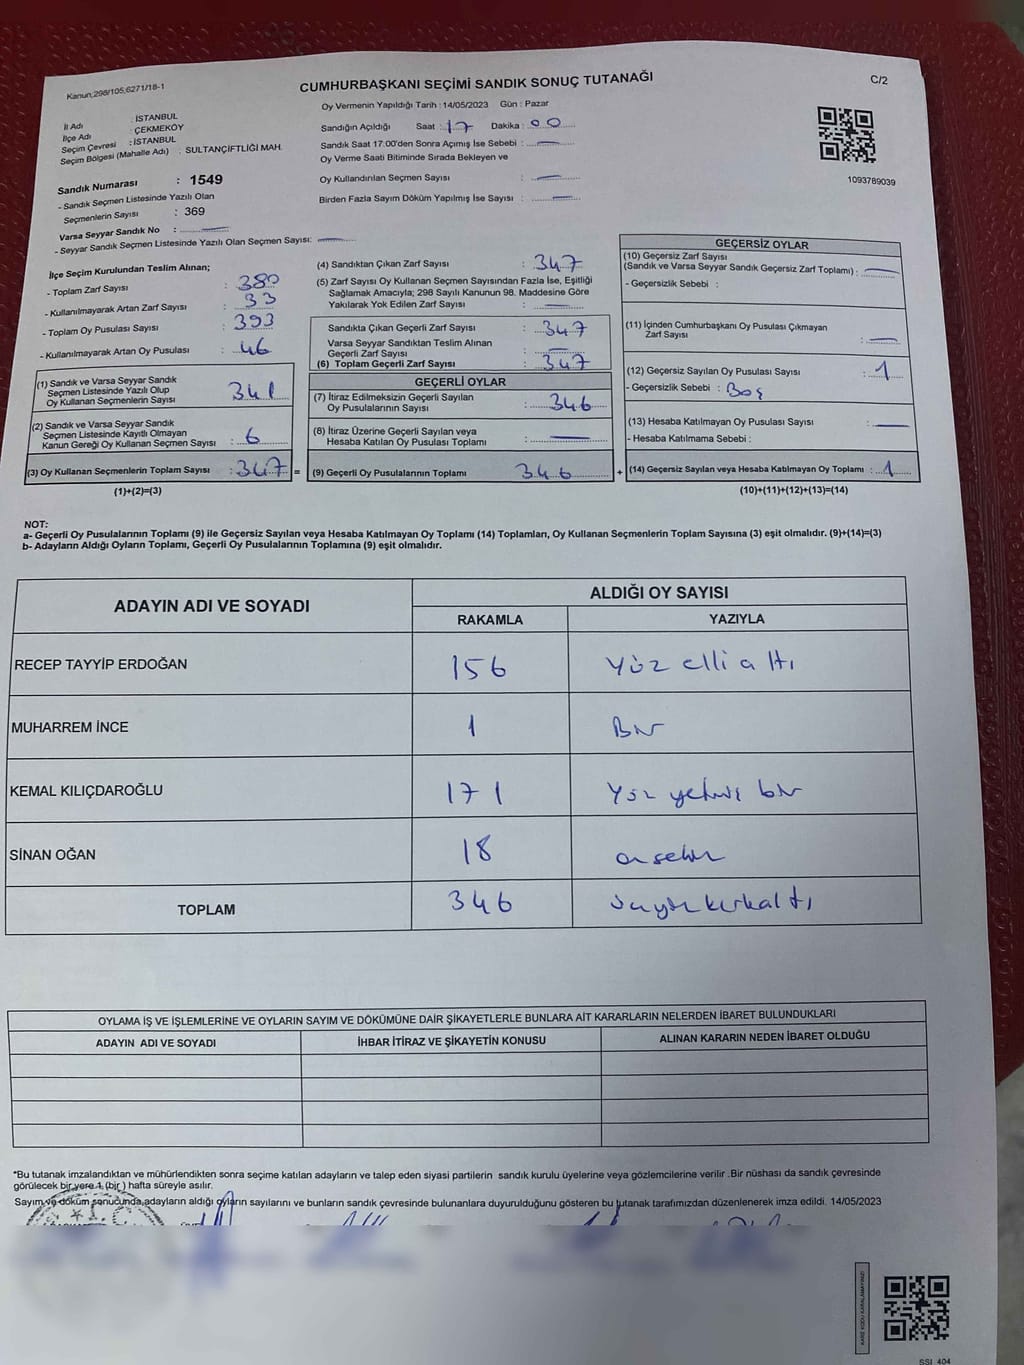 Kanun;298/105,6271/18-1
CUMHURBAŞKANI SEÇİMİ SANDIK SONUÇ TUTANAĞI
C/2
İl Adı : İSTANBUL
İlçe Adı : ÇEKMEKÖY
Seçim Çevresi : İSTANBUL
Seçim Bölgesi (Mahalle Adı) : SULTANÇİFTLİĞİ MAH.
Oy Vermenin Yapıldığı Tarih : 14/05/2023 Gün : Pazar
Sandığın Açıldığı Saat : 17 Dakika : 00
Sandık Saat 17:00'den Sonra Açımış İse Sebebi :
Oy Verme Saati Bitiminde Sırada Bekleyen ve
Oy Kullandırılan Seçmen Sayısı :
Birden Fazla Sayım Döküm Yapılmış İse Sayısı :
1093789039
Sandık Numarası : 1549
- Sandık Seçmen Listesinde Yazılı Olan
Seçmenlerin Sayısı : 369
Varsa Seyyar Sandık No :
- Seyyar Sandık Seçmen Listesinde Yazılı Olan Seçmen Sayısı:
İlçe Seçim Kurulundan Teslim Alınan;
- Toplam Zarf Sayısı : 380
- Kullanılmayarak Artan Zarf Sayısı : 33
- Toplam Oy Pusulası Sayısı : 393
- Kullanılmayarak Artan Oy Pusulası : 46
(1) Sandık ve Varsa Seyyar Sandık
Seçmen Listesinde Yazılı Olup
Oy Kullanan Seçmenlerin Sayısı : 341
(2) Sandık ve Varsa Seyyar Sandık
Seçmen Listesinde Kayıtlı Olmayan
Kanun Gereği Oy Kullanan Seçmen Sayısı : 6
(3) Oy Kullanan Seçmenlerin Toplam Sayısı : 347 =
(1)+(2)=(3)
(4) Sandıktan Çıkan Zarf Sayısı : 347
(5) Zarf Sayısı Oy Kullanan Seçmen Sayısından Fazla İse, Eşitliği
Sağlamak Amacıyla; 298 Sayılı Kanunun 98. Maddesine Göre
Yakılarak Yok Edilen Zarf Sayısı :
Sandıkta Çıkan Geçerli Zarf Sayısı : 347
Varsa Seyyar Sandıktan Teslim Alınan
Geçerli Zarf Sayısı :
(6) Toplam Geçerli Zarf Sayısı : 347
GEÇERLİ OYLAR
(7) İtiraz Edilmeksizin Geçerli Sayılan
Oy Pusulalarının Sayısı : 346
(8) İtiraz Üzerine Geçerli Sayılan veya
Hesaba Katılan Oy Pusulası Toplamı :
(9) Geçerli Oy Pusulalarının Toplamı 346 +
GEÇERSİZ OYLAR
(10) Geçersiz Zarf Sayısı
(Sandık ve Varsa Seyyar Sandık Geçersiz Zarf Toplamı) :
- Geçersizlik Sebebi :
(11) İçinden Cumhurbaşkanı Oy Pusulası Çıkmayan
Zarf Sayısı :
(12) Geçersiz Sayılan Oy Pusulası Sayısı : 1
- Geçersizlik Sebebi : Boş
(13) Hesaba Katılmayan Oy Pusulası Sayısı :
- Hesaba Katılmama Sebebi :
(14) Geçersiz Sayılan veya Hesaba Katılmayan Oy Toplamı : 1
(10)+(11)+(12)+(13)=(14)
NOT:
a- Geçerli Oy Pusulalarının Toplamı (9) ile Geçersiz Sayılan veya Hesaba Katılmayan Oy Toplamı (14) Toplamları, Oy Kullanan Seçmenlerin Toplam Sayısına (3) eşit olmalıdır. (9)+(14)=(3)
b- Adayların Aldığı Oyların Toplamı, Geçerli Oy Pusulalarının Toplamına (9) eşit olmalıdır.
ADAYIN ADI VE SOYADI ALDIĞI OY SAYISI
RAKAMLA YAZIYLA
RECEP TAYYİP ERDOĞAN 156 Yüz elli altı
MUHARREM İNCE 1 Bir
KEMAL KILIÇDAROĞLU 171 Yüz yetmiş bir
SİNAN OĞAN 18 onsekiz
TOPLAM 346 üçyüzkırkaltı
OYLAMA İŞ VE İŞLEMLERİNE VE OYLARIN SAYIM VE DÖKÜMÜNE DAİR ŞİKAYETLERLE BUNLARA AİT KARARLARIN NELERDEN İBARET BULUNDUKLARI
ADAYIN ADI VE SOYADI İHBAR İTİRAZ VE ŞİKAYETİN KONUSU ALINAN KARARIN NEDEN İBARET OLDUĞU
*Bu tutanak imzalandıktan ve mühürlendikten sonra seçime katılan adayların ve talep eden siyasi partilerin sandık kurulu üyelerine veya gözlemcilerine verilir .Bir nüshası da sandık çevresinde
görülecek bir yere 1 (bir ) hafta süreyle asılır.
Sayım ve döküm sonucunda adayların aldığı oyların sayılarını ve bunların sandık çevresinde bulunanlara duyurulduğunu gösteren bu tutanak tarafımızdan düzenlenerek imza edildi. 14/05/2023
T.C.
KARE KODU KARALAMAYINIZ!
SSI_404